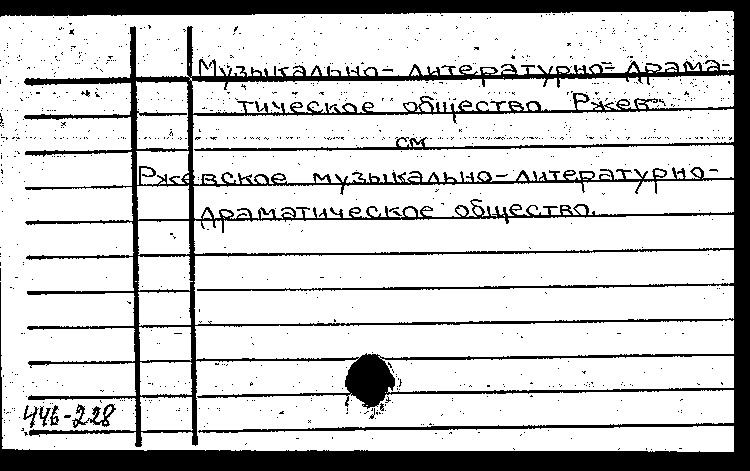 Музыкально-литературно-драма-
тическое общество. Ржев
см
Ржевское музыкально-литературно-
драматическое общество.
446-228